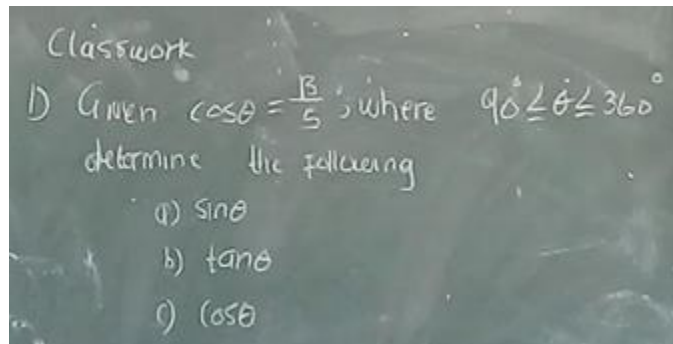 Classwork
1) Given cosθ = √3/5 ; where 90° ≤ θ ≤ 360°
determine the following
a) sinθ
b) tanθ
c) cosθ